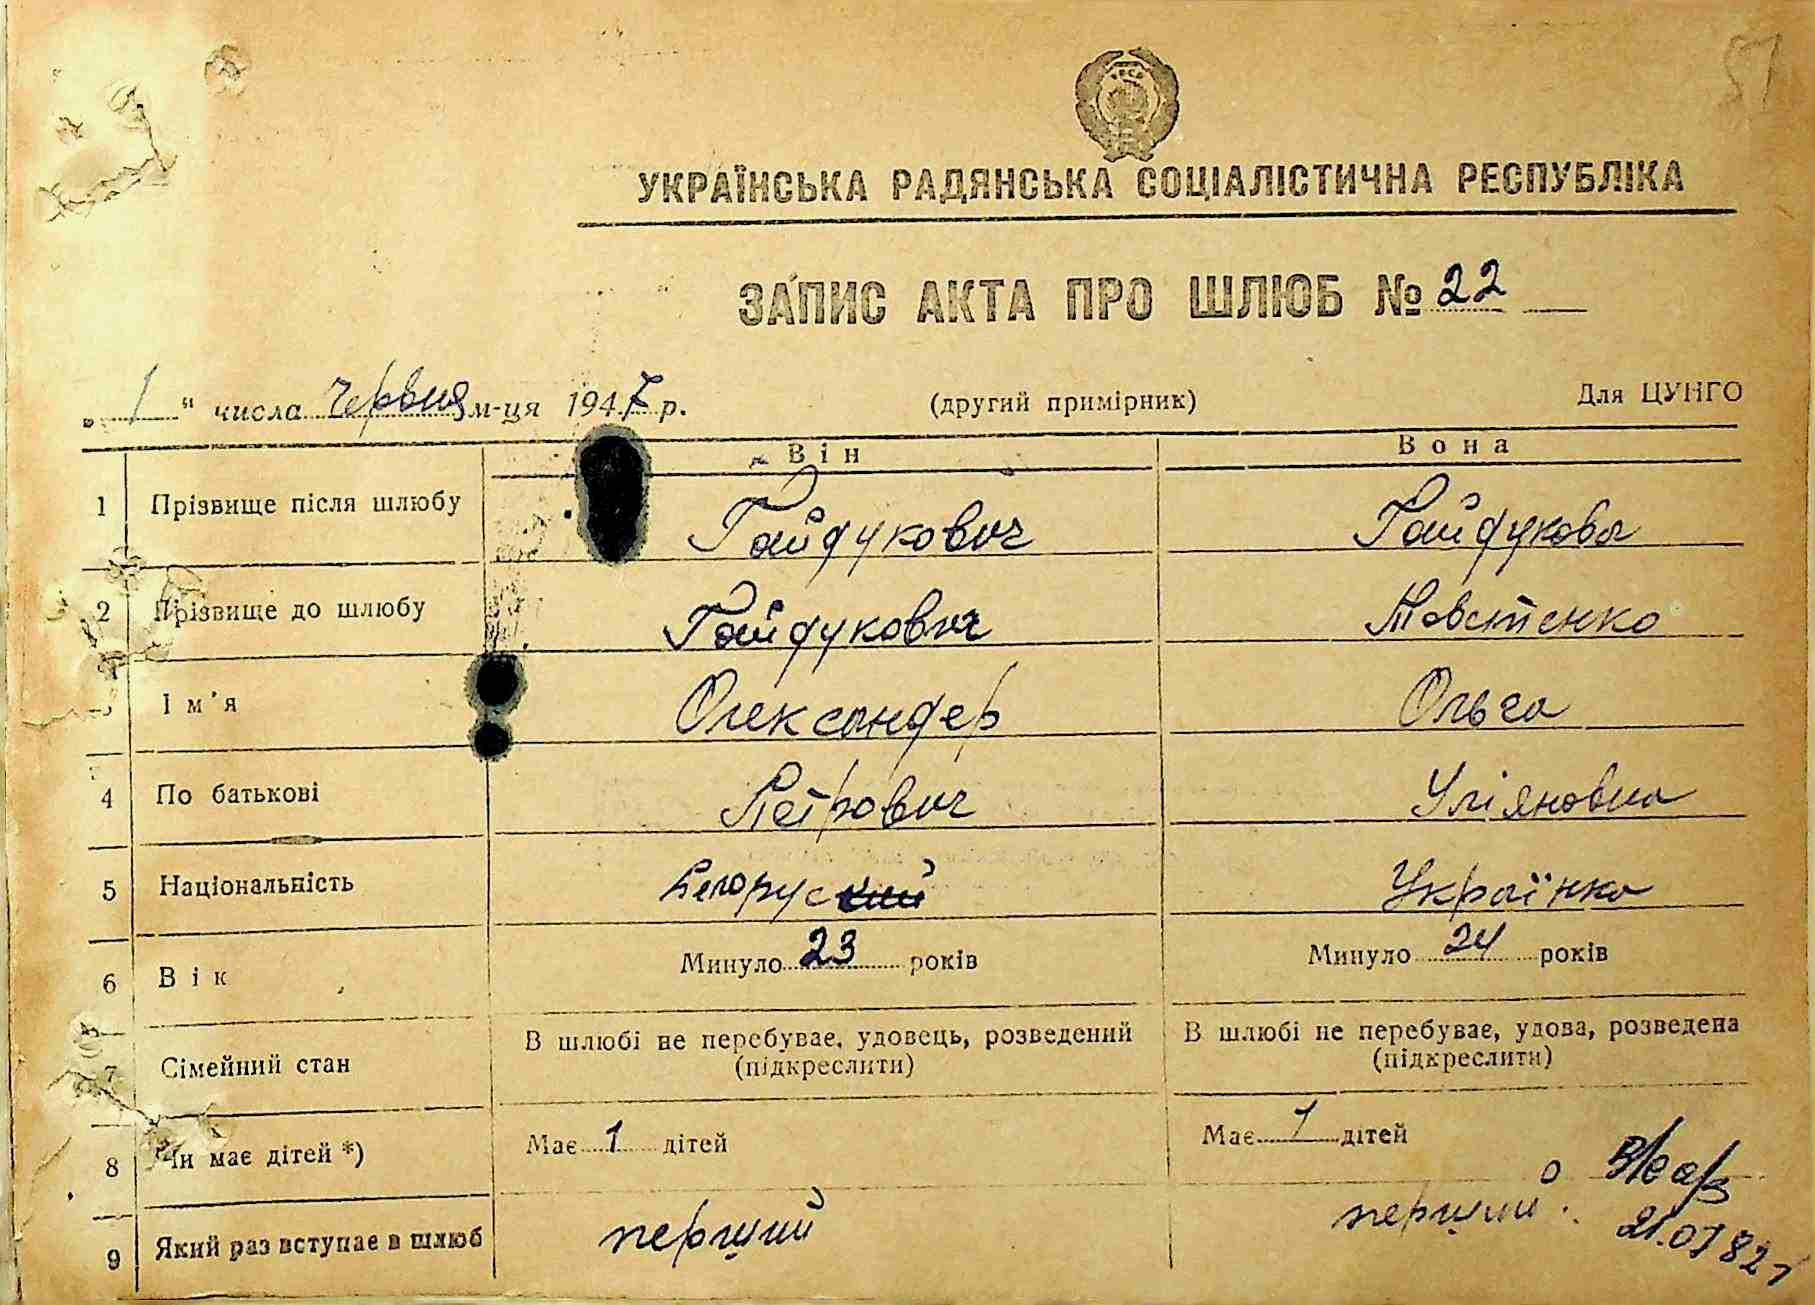 51
УКРАЇНСЬКА РАДЯНСЬКА СОЦІАЛІСТИЧНА РЕСПУБЛІКА
ЗАПИС АКТА ПРО ШЛЮБ № 22
„ 1 " числа червня м-ця 1947 р. (другий примірник) Для ЦУНГО
Він Вона
1 Прізвище після шлюбу Гайдукович Гайдукова
2 Прізвище до шлюбу Гайдукович Товстенко
Ім'я Олександер Ольга
4 По батькові Петрович Уліяновна
5 Національність Білорус Українка
6 Вік Минуло 23 років Минуло 24 років
7 Сімейний стан В шлюбі не перебуває, удовець, розведений В шлюбі не перебуває, удова, розведена
(підкреслити) (підкреслити)
8 Чи має дітей *) Має 1 дітей Має 1 дітей
9 Який раз вступає в шлюб перший перший